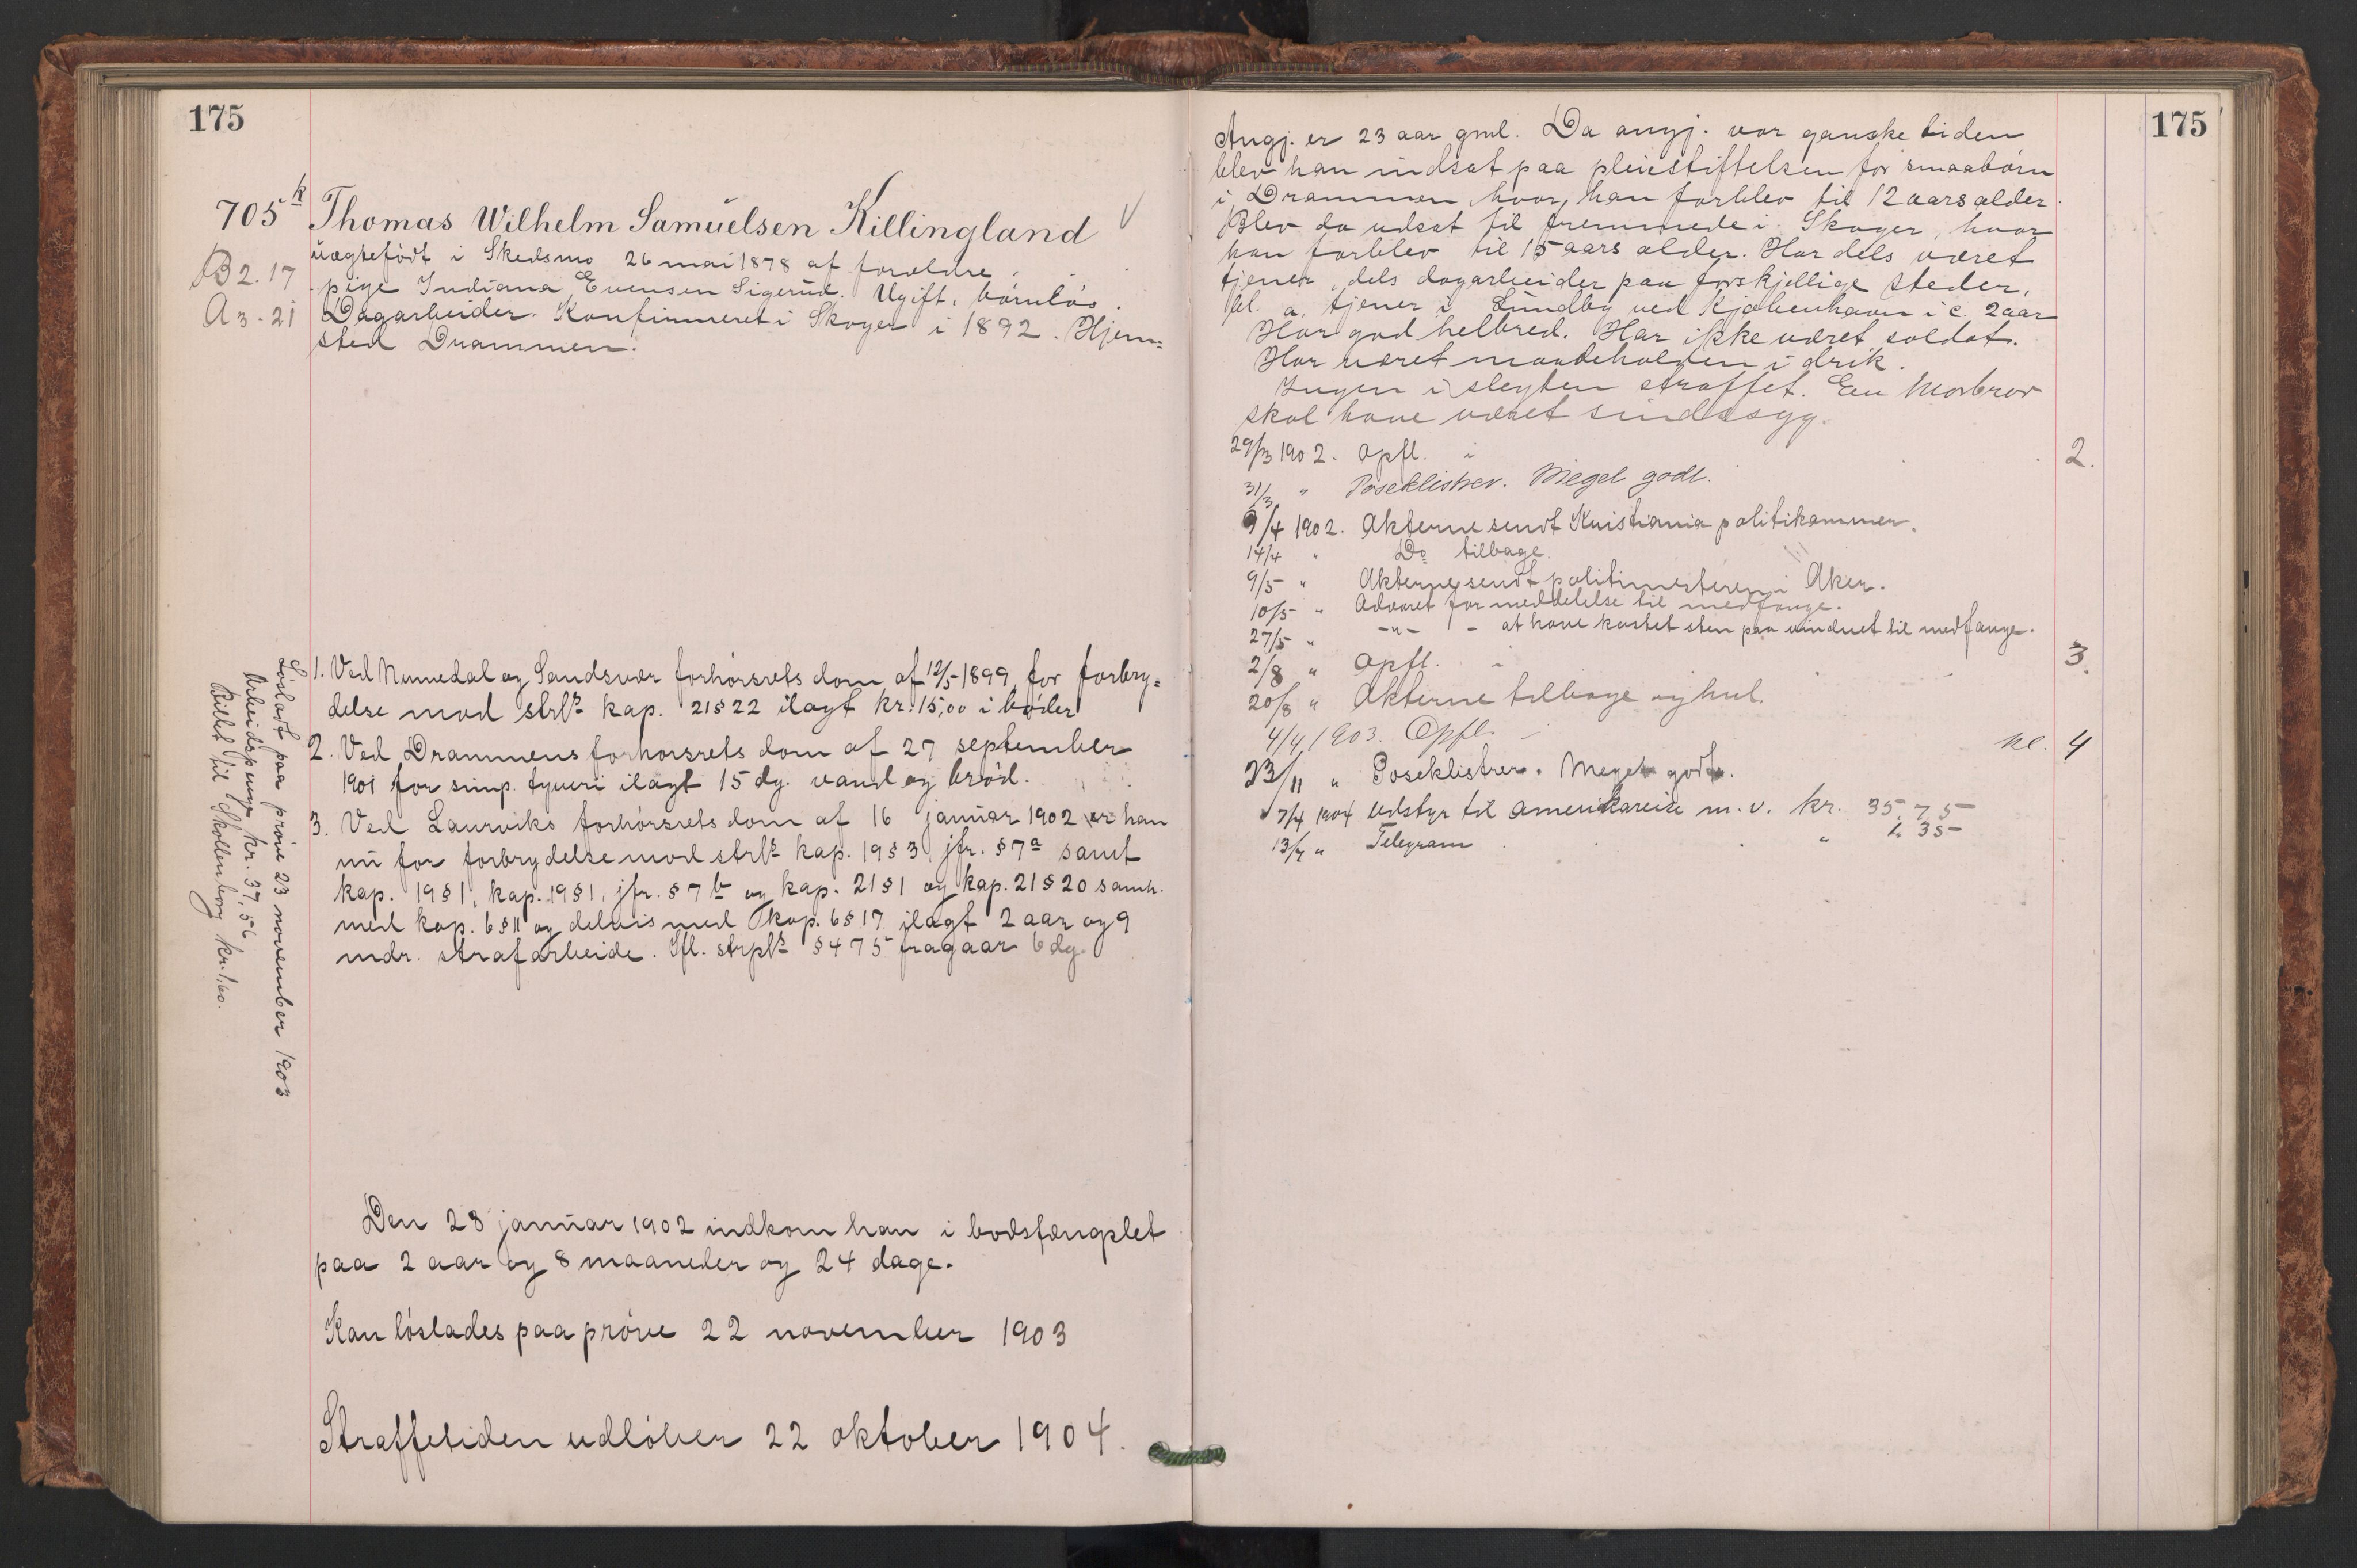 175
705 k Thomas Wilhelm Samuelsen Killingland
B 2. 17
A 3 - 21
uægtefødt i Skedsmo 26 mai 1878 af forældre
pige Indiana Evensen Sigerud. Ugift, børnløs.
Dagarbeider. Konfirmeret i Skoger i 1892. Hjem=
sted Drammen.
1. Ved Numedal og Sandsvær forhørsrets dom af 12/5 1899 for forbry=
delse mod strl. kap. 21 § 22 ilagt kr. 15,00 i bøder
2. Ved Drammens forhørsrets dom af 27 september
1901 for simp. tyveri ilagt 15 dg. vand og brød.
3. Ved Laurviks forhørsrets dom af 16 januar 1902 er han
nu for forbrydelse mod strl. kap. 19 § 3, jfr. § 7 a samt
kap. 19 § 1, kap. 19 § 1, jfr. § 7 b og kap. 21 § 1 og kap. 21 § 20 samh.
med kap. 6 § 11 og delvis med kap. 6 § 17 ilagt 2 aar og 9
mdr. strafarbeide. Ifl. strpl. § 475 fragaar 6 dg.
Løsladt paa prøve 23 november 1903
Arbeidspenge kr. 37,56
Billet til Skollenborg kr. 1,60.
Den 28 januar 1902 indkom han i bodsfængslet
paa 2 aar og 8 maaneder og 24 dage.
Kan løslades paa prøve 22 november 1903
Straffetiden udløber 22 oktober 1904.
175
Angj. er 23 aar gml. Da angj. var ganske liden
blev han indsat paa pleiestiftelsen for smaabørn
i Drammen, hvor han forblev til 12 aars alder.
Blev da udsat til fremmede i Skoger, hvor
han forblev til 15 aars alder. Har dels været
tjener, dels dagarbeider paa forskjellige steder,
bl. a. tjener i Lundby ved Kjøbenhavn i c. 2 aar
Har god helbred. Har ikke været soldat.
Har været maadeholden i drik.
Ingen i slegten straffet. En Morbror
skal have været sindssyg.
29/3 1902. Opfl. i 2.
31/3 " Poseklistrer. Meget godt.
9/4 1902. Akterne sendt Kristiania politikammer.
14/4 " Do tilbage.
9/5 " Akterne sendt politimesteren i Aker.
10/5 " Advaret for meddelelse til medfange.
27/5 " -"- - at have kastet sten paa vinduet til medfange.
2/8 " Opfl. i 3.
20/8 " Akterne tilbage og hul.
4/4 1903. Opfl. kl. 4
23/11 " Poseklistrer. Meget godt.
7/4 1904 Udstyr til Amerikareise m. v. kr. 35,75
13/4 " Telegram " 1,35